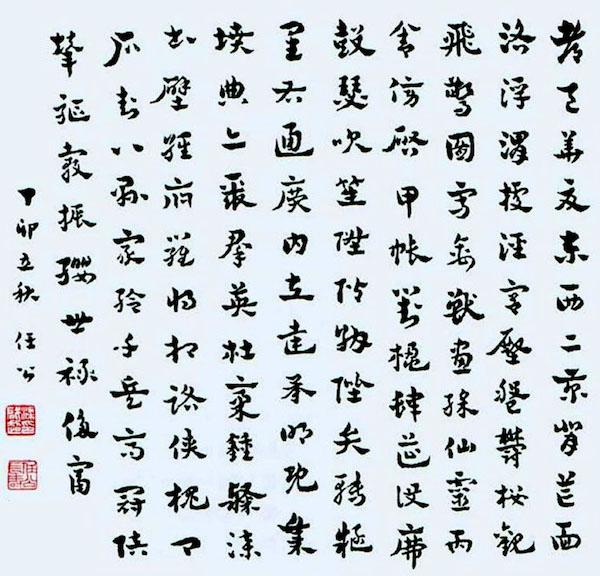 都邑華夏東西二京背芒面
洛浮渭據涇宮殿盤鬱樓觀
飛驚圖寫禽獸畫綵仙靈丙
舍傍啓甲帳對楹肆筵設席
鼓瑟吹笙陞階納陛弁轉疑
星右通廣內左達承明既集
墳典亦聚羣英杜稾鍾隸漆
書壁經府羅將相路俠槐卿
戶封八縣家給千兵高冠陪
輦驅轂振纓世祿侈富
丁卯立秋 任公